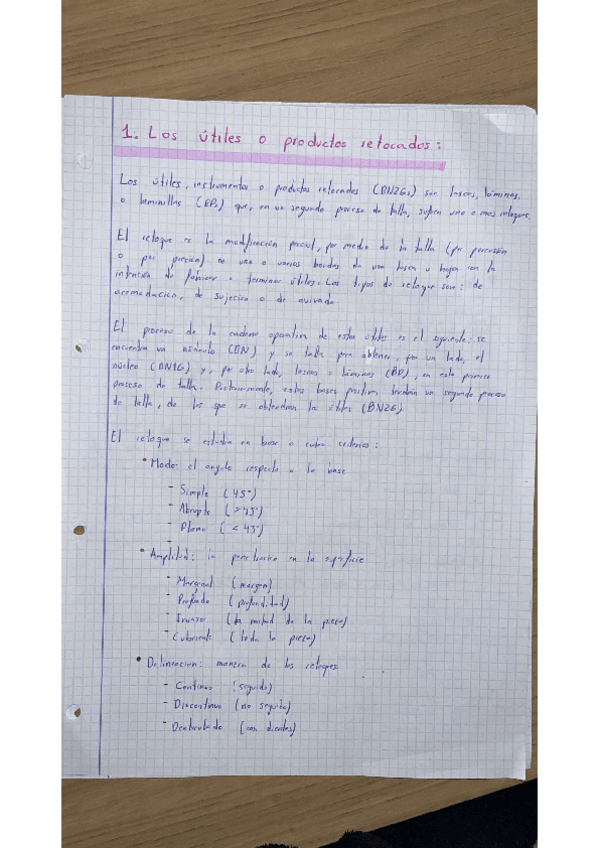 1. Los útiles o productos retocados:
Los útiles, instrumentos o productos retocados (BN2Gs) son lascas, láminas
o laminillas (BPs) que, en un segundo proceso de talla, sufren uno o más retoques.
El retoque es la modificación parcial, por medio de la talla (por percusión
o por presión) de uno o varios bordes de una lasca u hoja con la
intención de fabricar o terminar útiles. Los tipos de retoque son: de
acomodación, de sujeción o de avivado.
El proceso de la cadena operativa de estos útiles es el siguiente: se
encuentra un nódulo (BN) y se talla para obtener, por un lado, el
núcleo (BN1G) y, por otro lado, lascas o láminas (BP), en este primer
proceso de talla. Posteriormente, estas bases positivas tendrán un segundo proceso
de talla, de los que se obtendrán los útiles (BN2G).
El retoque se estudia en base a cuatro criterios:
• Modo: el ángulo respecto a la base
- Simple (45°)
- Abrupto (>45°)
- Plano (<45°)
-
• Amplitud: la penetración en la superficie
- Marginal (margen)
- Profundo (profundidad)
- Invasor (la mitad de la pieza)
- Cubriente (toda la pieza)
• Delineación: manera de los retoques
- Continuo (seguido)
- Discontinuo (no seguido)
- Denticulado (con dientes)